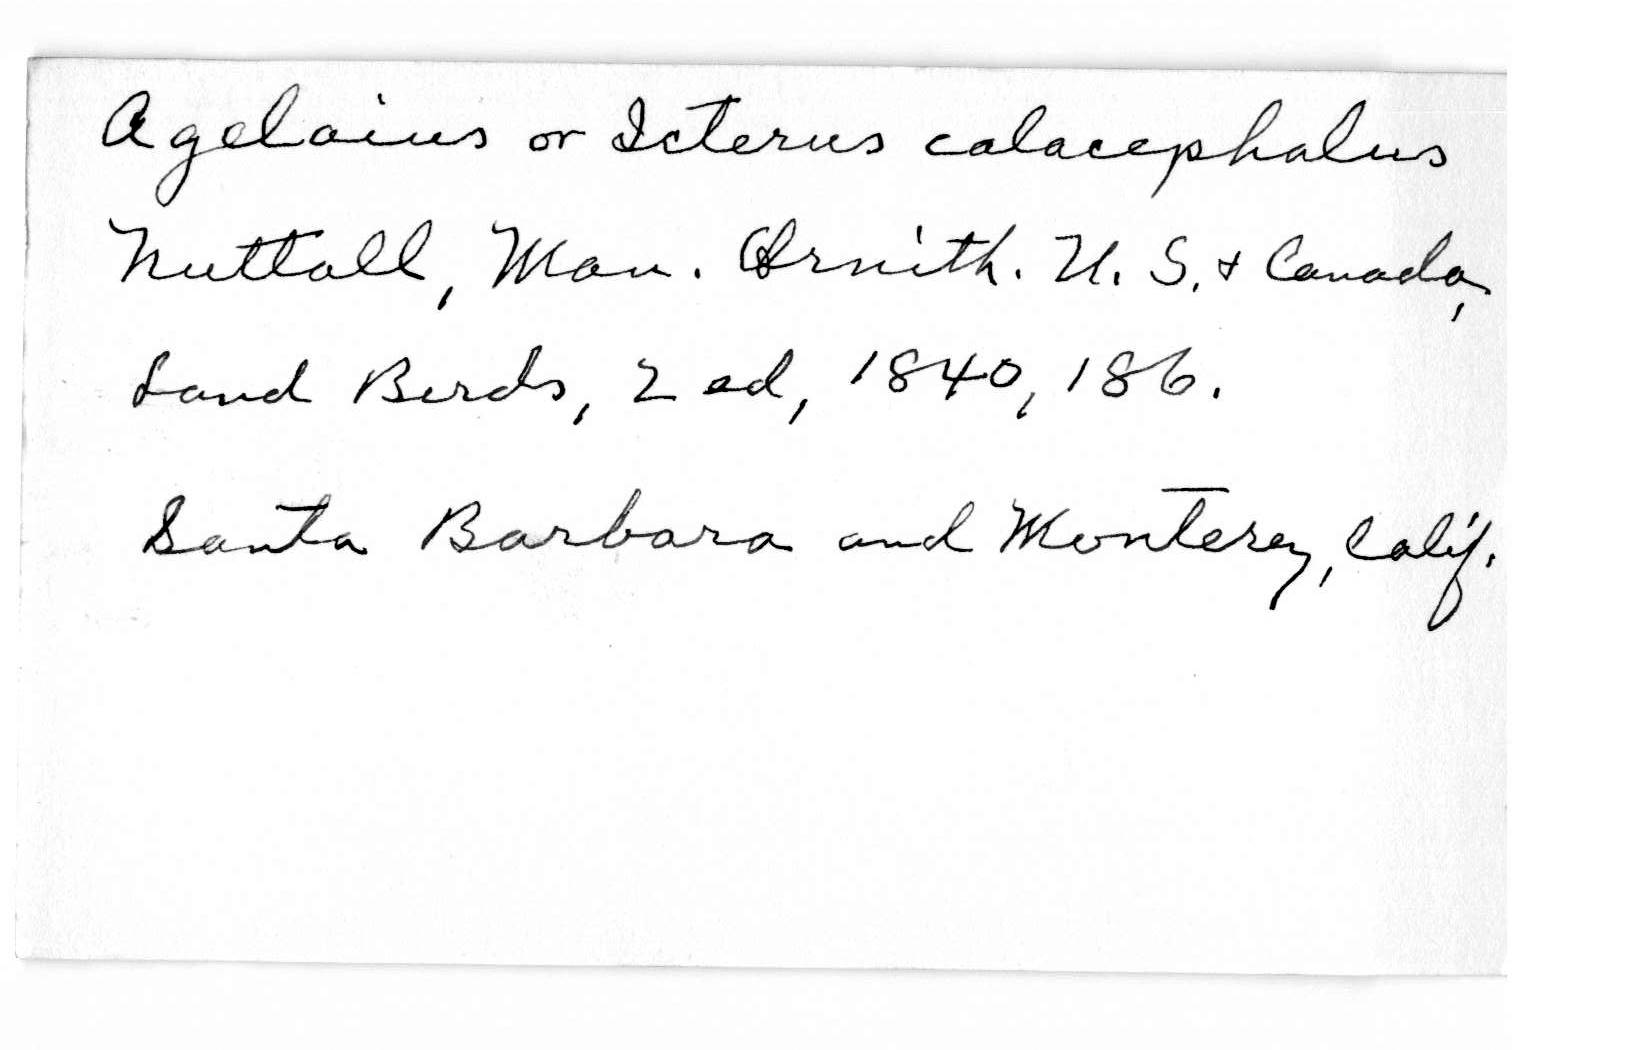 Agelaius or Icterus calacephalus
Nuttall, Man. Ornith. U. S. & Canada,
Land Birds, 2 ed, 1840, 186.
Santa Barbara and Monterey, Calif.